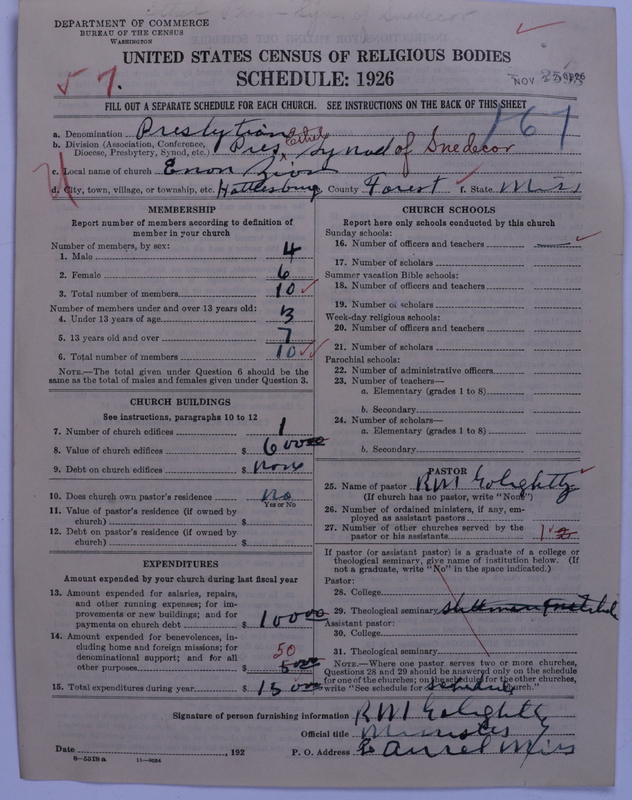 DEPARTMENT OF COMMERCE
BUREAU OF THE CENSUS
WASHINGTON
UNITED STATES CENSUS OF RELIGIOUS BODIES
SCHEDULE: 1926
NOV
FILL OUT A SEPARATE SCHEDULE FOR EACH CHURCH. SEE INSTRUCTIONS ON THE BACK OF THIS SHEET
a. Denomination Presbytian
b. Division (Association, Conference, Diocese, Presbytery, Synod, etc.) Pres Synod of Snedecor
c. Local name of church Enon Zion
d. City, town, village, or township, etc. Hattiesburg County Forest f. State Miss
MEMBERSHIP
Report number of members according to definition of
member in your church
Number of members, by sex:
1. Male 4
2. Female 6
3. Total number of members 10
Number of members under and over 13 years old:
4. Under 13 years of age 3
5. 13 years old and over 7
6. Total number of members 10
NOTE.—The total given under Question 6 should be the
same as the total of males and females given under Question 3.
CHURCH BUILDINGS
See instructions, paragraphs 10 to 12
7. Number of church edifices 1
8. Value of church edifices $ 600
9. Debt on church edifices $ None
10. Does church own pastor's residence No
Yes or No
11. Value of pastor's residence (if owned by
church) $
12. Debt on pastor's residence (if owned by
church) $
EXPENDITURES
Amount expended by your church during last fiscal year
13. Amount expended for salaries, repairs,
and other running expenses; for im-
provements or new buildings; and for
payments on church debt $ 100
14. Amount expended for benevolences, in-
cluding home and foreign missions; for
denominational support; and for all
other purposes $ 50
15. Total expenditures during year $ 150
CHURCH SCHOOLS
Report here only schools conducted by this church
Sunday schools:
16. Number of officers and teachers
17. Number of scholars
Summer vacation Bible schools:
18. Number of officers and teachers
19. Number of scholars
Week-day religious schools:
20. Number of officers and teachers
21. Number of scholars
Parochial schools:
22. Number of administrative officers
23. Number of teachers—
a. Elementary (grades 1 to 8)
b. Secondary
24. Number of scholars—
a. Elementary (grades 1 to 8)
b. Secondary
PASTOR
25. Name of pastor R M Golightly
(If church has no pastor, write "None")
26. Number of ordained ministers, if any, em-
ployed as assistant pastors
27. Number of other churches served by the
pastor or his assistants 1
If pastor (or assistant pastor) is a graduate of a college or
theological seminary, give name of institution below. (If
not a graduate, write "No" in the space indicated.)
Pastor:
28. College
29. Theological seminary
Assistant pastor:
30. College
31. Theological seminary
NOTE.—Where one pastor serves two or more churches,
Questions 28 and 29 should be answered only on the schedule
for one of the churches; on the schedule for the other churches,
write "See schedule for church."
Signature of person furnishing information R M Golightly
Official title Minister
Date , 192 P. O. Address Laurel Miss
8-5518a 11-9034